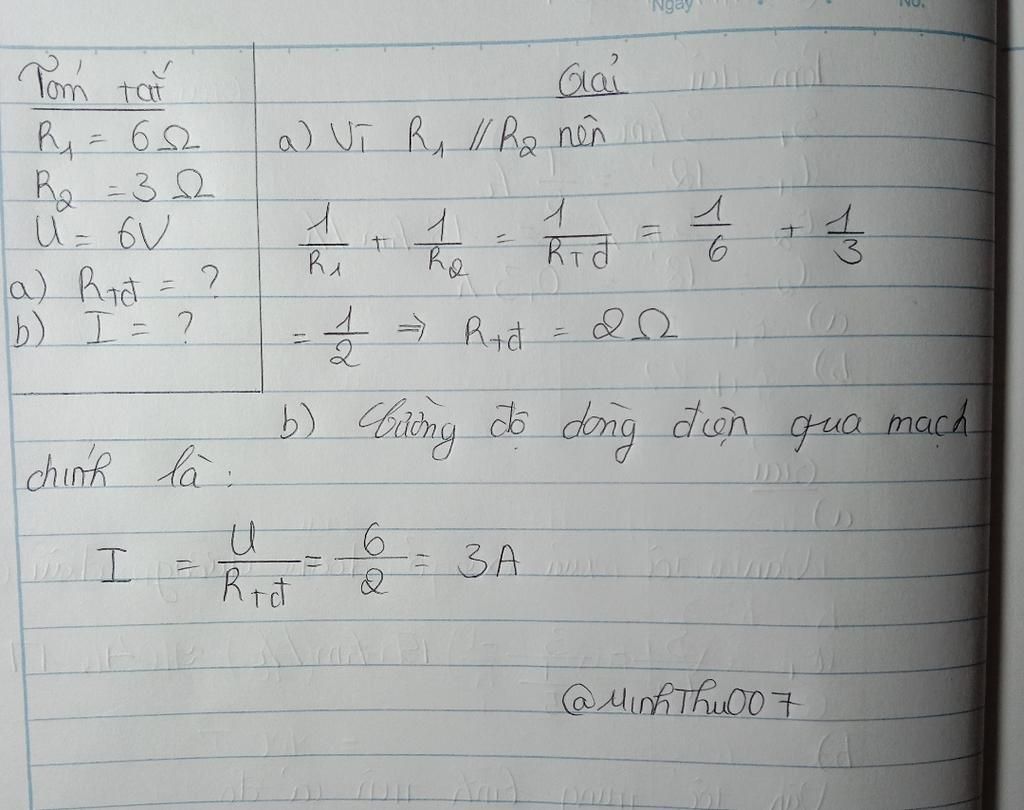 Ngày No.
Tóm tắt
R₁ = 6Ω
R₂ = 3 Ω
U = 6V
a) Rtđ = ?
b) I = ?
Giải
a) Vì R₁ // R₂ nên
1/R₁ + 1/R₂ = 1/Rtđ = 1/6 + 1/3
= 1/2 ⇒ Rtđ = 2Ω
b) Cường độ dòng điện qua mạch
chính là :
I = U/Rtđ = 6/2 = 3A
@MinhThu007